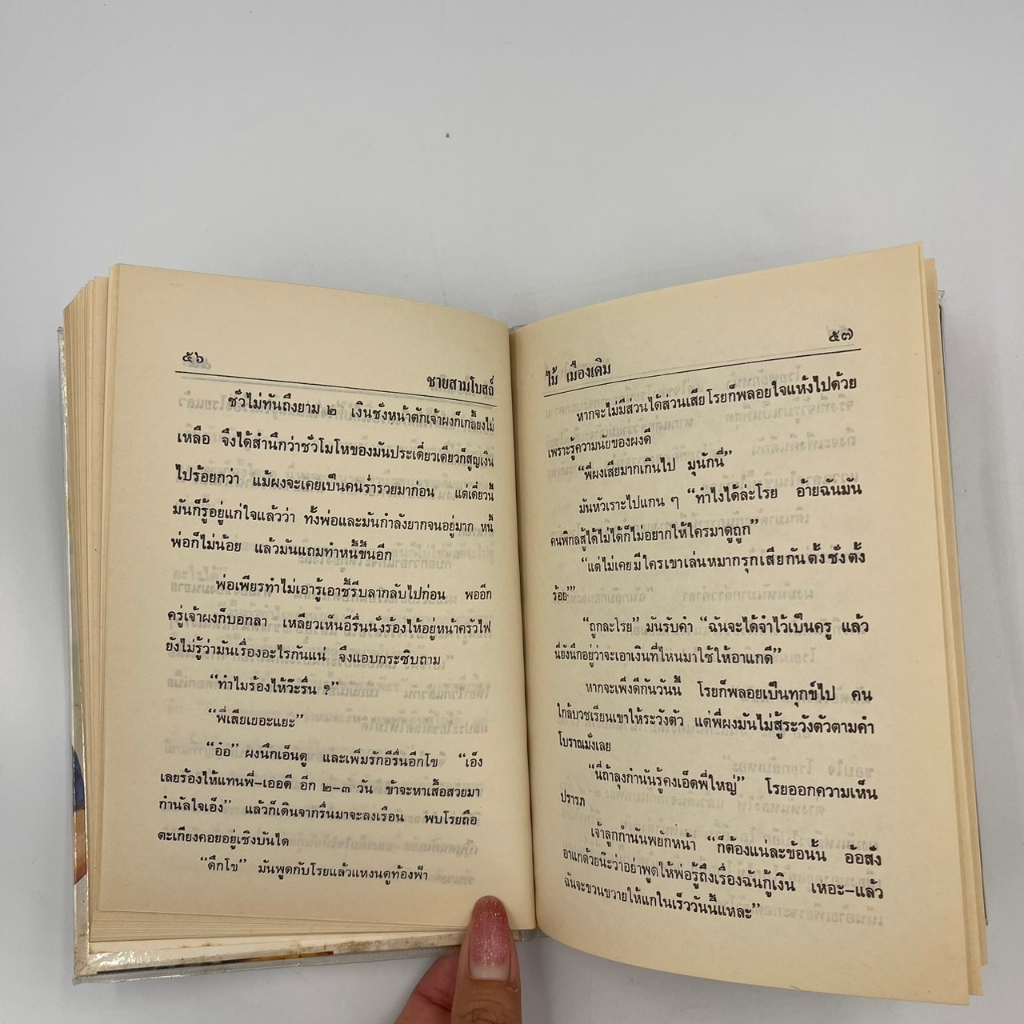 ๕๖
ชายสามโบสถ์
ชั่วไม่ทันถึงยาม ๒ เงินชั่งหน้าตักเจ้าผงก็เกลี้ยงไม่
เหลือ จึงได้สำนึกว่าชั่วโมโหของมันประเดี๋ยวเดียวก็สูญเงิน
ไปร้อยกว่า แม้ผงจะเคยเป็นคนร่ำรวยมาก่อน แต่เดี๋ยวนี้
มันก็รู้อยู่แก่ใจแล้วว่า ทั้งพ่อและมันกำลังยากจนอยู่มาก หนี้
พ่อก็ไม่น้อย แล้วมันแถมทำหนี้ขึ้นอีก
พ่อเพียรทำไม่เอารู้เอาชี้รีบลากลับไปก่อน พออีก
ครู่เจ้าผงก็บอกลา เหลียวเห็นอีรื่นนั่งร้องไห้อยู่หน้าครัวไฟ
ยังไม่รู้ว่ามันเรื่องอะไรกันแน่ จึงแอบกระซิบถาม
“ทำไมร้องไห้ว๊ะรื่น ?”
“พี่เสียเยอะแยะ”
“อ๋อ” ผงนึกเอ็นดู และเพิ่มรักอีรื่นอีกโข “เอ็ง
เลยร้องไห้แทนพี่–เออดี อีก ๒–๓ วัน ข้าจะหาเสื้อสวยมา
กำนัลใจเอ็ง” แล้วก็เดินจากรื่นมาจะลงเรือน พบโรยถือ
ตะเกียงคอยอยู่เชิงบันได
“ดึกโข” มันพูดกับโรยแล้วแหงนดูท้องฟ้า
ไม้ เมืองเดิม
๕๗
หากจะไม่มีส่วนได้ส่วนเสีย โรยก็พลอยใจแห้งไปด้วย
เพราะรู้ความนัยของผงดี
“พี่ผงเสียมากเกินไป มุนักนี่”
มันหัวเราะไปแกน ๆ “ทำไงได้ล่ะโรย อ้ายฉันมัน
คนพิกลสู้ได้ไม่ได้ก็ไม่อยากให้ใครมาดูถูก”
“แต่ไม่เคยมีใครเขาเล่นหมากรุกเสียกันตั้งชั่งตั้ง
ร้อย”
“ถูกละโรย” มันรับคำ “ฉันจะได้จำไว้เป็นครู แล้ว
นี่ยังนึกอยู่ว่าจะเอาเงินที่ไหนมาใช้ให้อาแกดี”
หากจะเพิ่งดีกันวันนี้ โรยก็พลอยเป็นทุกข์ไป คน
ใกล้บวชเรียนเขาให้ระวังตัว แต่พี่ผงมันไม่สู้ระวังตัวตามคำ
โบราณมั่งเลย
“นี่ถ้าลุงกำนันรู้คงเอ็ดพี่ใหญ่” โรยออกความเห็น
ปรารภ
เจ้าลูกกำนันพยักหน้า “ก็ต้องแน่ละข้อนั้น อ้อสั่ง
อาแกด้วยน๊ะว่าอย่าพูดให้พ่อรู้ถึงเรื่องฉันกู้เงิน เหอะ–แล้ว
ฉันจะขวนขวายให้แกในเร็ววันนี้แหละ”